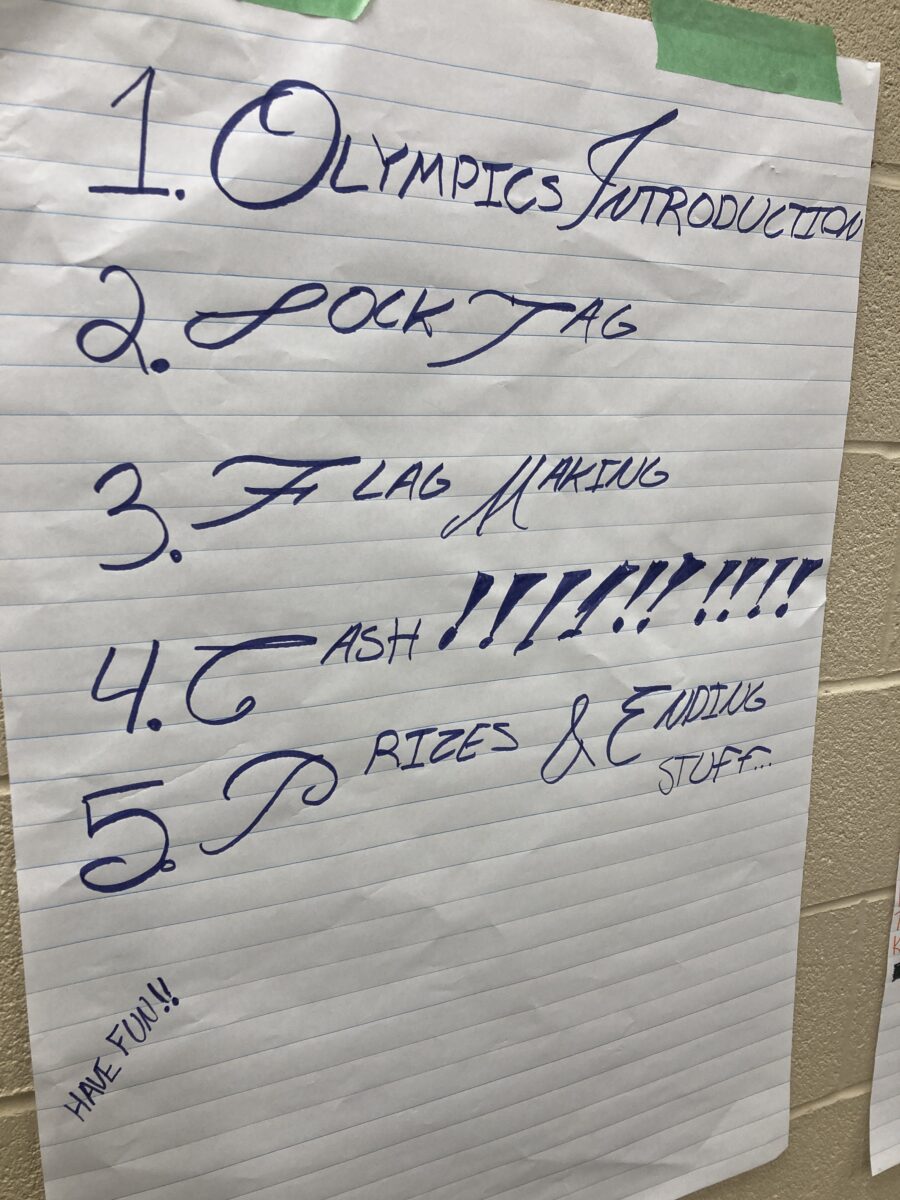 1. OLYMPICS INTRODUCTION
2. SOCK TAG
3. FLAG MAKING
4. CASH !!!!!!!!!!
5. PRIZES & ENDING
STUFF...
HAVE FUN!!